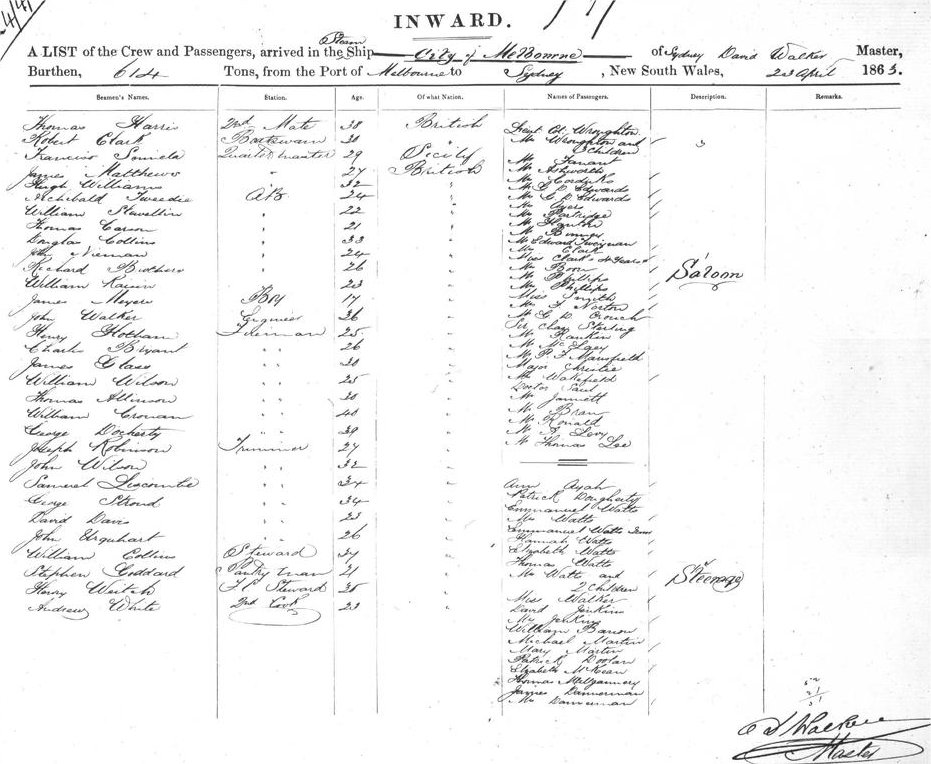 INWARD.
A LIST of the Crew and Passengers, arrived in the Steam Ship City of Melbourne of Sydney David Walker Master,
Burthen, 614 Tons, from the Port of Melbourne to Sydney, New South Wales, 23 April 1863.
Seamen's Names. Station. Age. Of what Nation. Names of Passengers. Description. Remarks.
Thomas Harris 2nd Mate 38 British
Robert Clark Boatswain 30 "
Francisco 29 Sicily
James Matthews " 27 British
Hugh Williams 32 "
Archibald Tweedie AB 24 "
William 22 "
Thomas Carson " 21 "
Douglas Collins " 33 "
John 24 "
Richard " 26 "
William " 23 "
James Meyers Boy 17 "
John Walker Engineer 36 "
Henry Hotham Fireman 25 "
Charles Bryant " " 26 "
James Glass " " 30 "
William Wilson " " 25 "
Thomas Allinson " " 30 "
William Cronan " " 40 "
George Docherty " " 39 "
Joseph Robinson Trimmer 27 "
John Wilson " " 32 "
Samuel Liscombe " " 34 "
George Stroud " " 34 "
David Davis " " 23 "
John Urquhart " " 26 "
William Collins Steward 37 "
Stephen Goddard Pantryman 21 "
Henry Steward 35 "
Andrew White 2nd Cook 23 "
Lieut Col Wroughton
Mrs Wroughton and
3 Children 3
Mr
Mr Ashworth
Mr
Mr G D Edwards
Mr G D Edwards
Mr Ayers
Mr Partridge
Mr
Mr
Mr Edward
Mrs Clark
Miss Clark 4 Years
Mr Boon
Mr Phillips
Mr Phillips
Miss Smith
Mr J Norton
Mr G D Crouch
Sir Chas Sterling
Mr Rankin
Mr
Mr P F Mansfield
Major Christie
Mr Wakefield
Doctor
Mr
Mr
Mr Ronald
Mr Levy
Mr Thomas Lee
Saloon
Ann Ayah
Patrick Dougherty
Emmanuel Watts
Mrs Watts
Emmanuel Watts Junr
Hannah Watts
Elizabeth Watts
Thomas Watts
Mrs Watts and
2 Children
Miss Walker
David Jenkins
Mrs Jenkins
William Barron
Michael Martin
Mary Martin
Patrick Doolan
Elizabeth McKean
Thomas
James Dannerman
Mrs Dannerman
Steerage
D Walker
Master